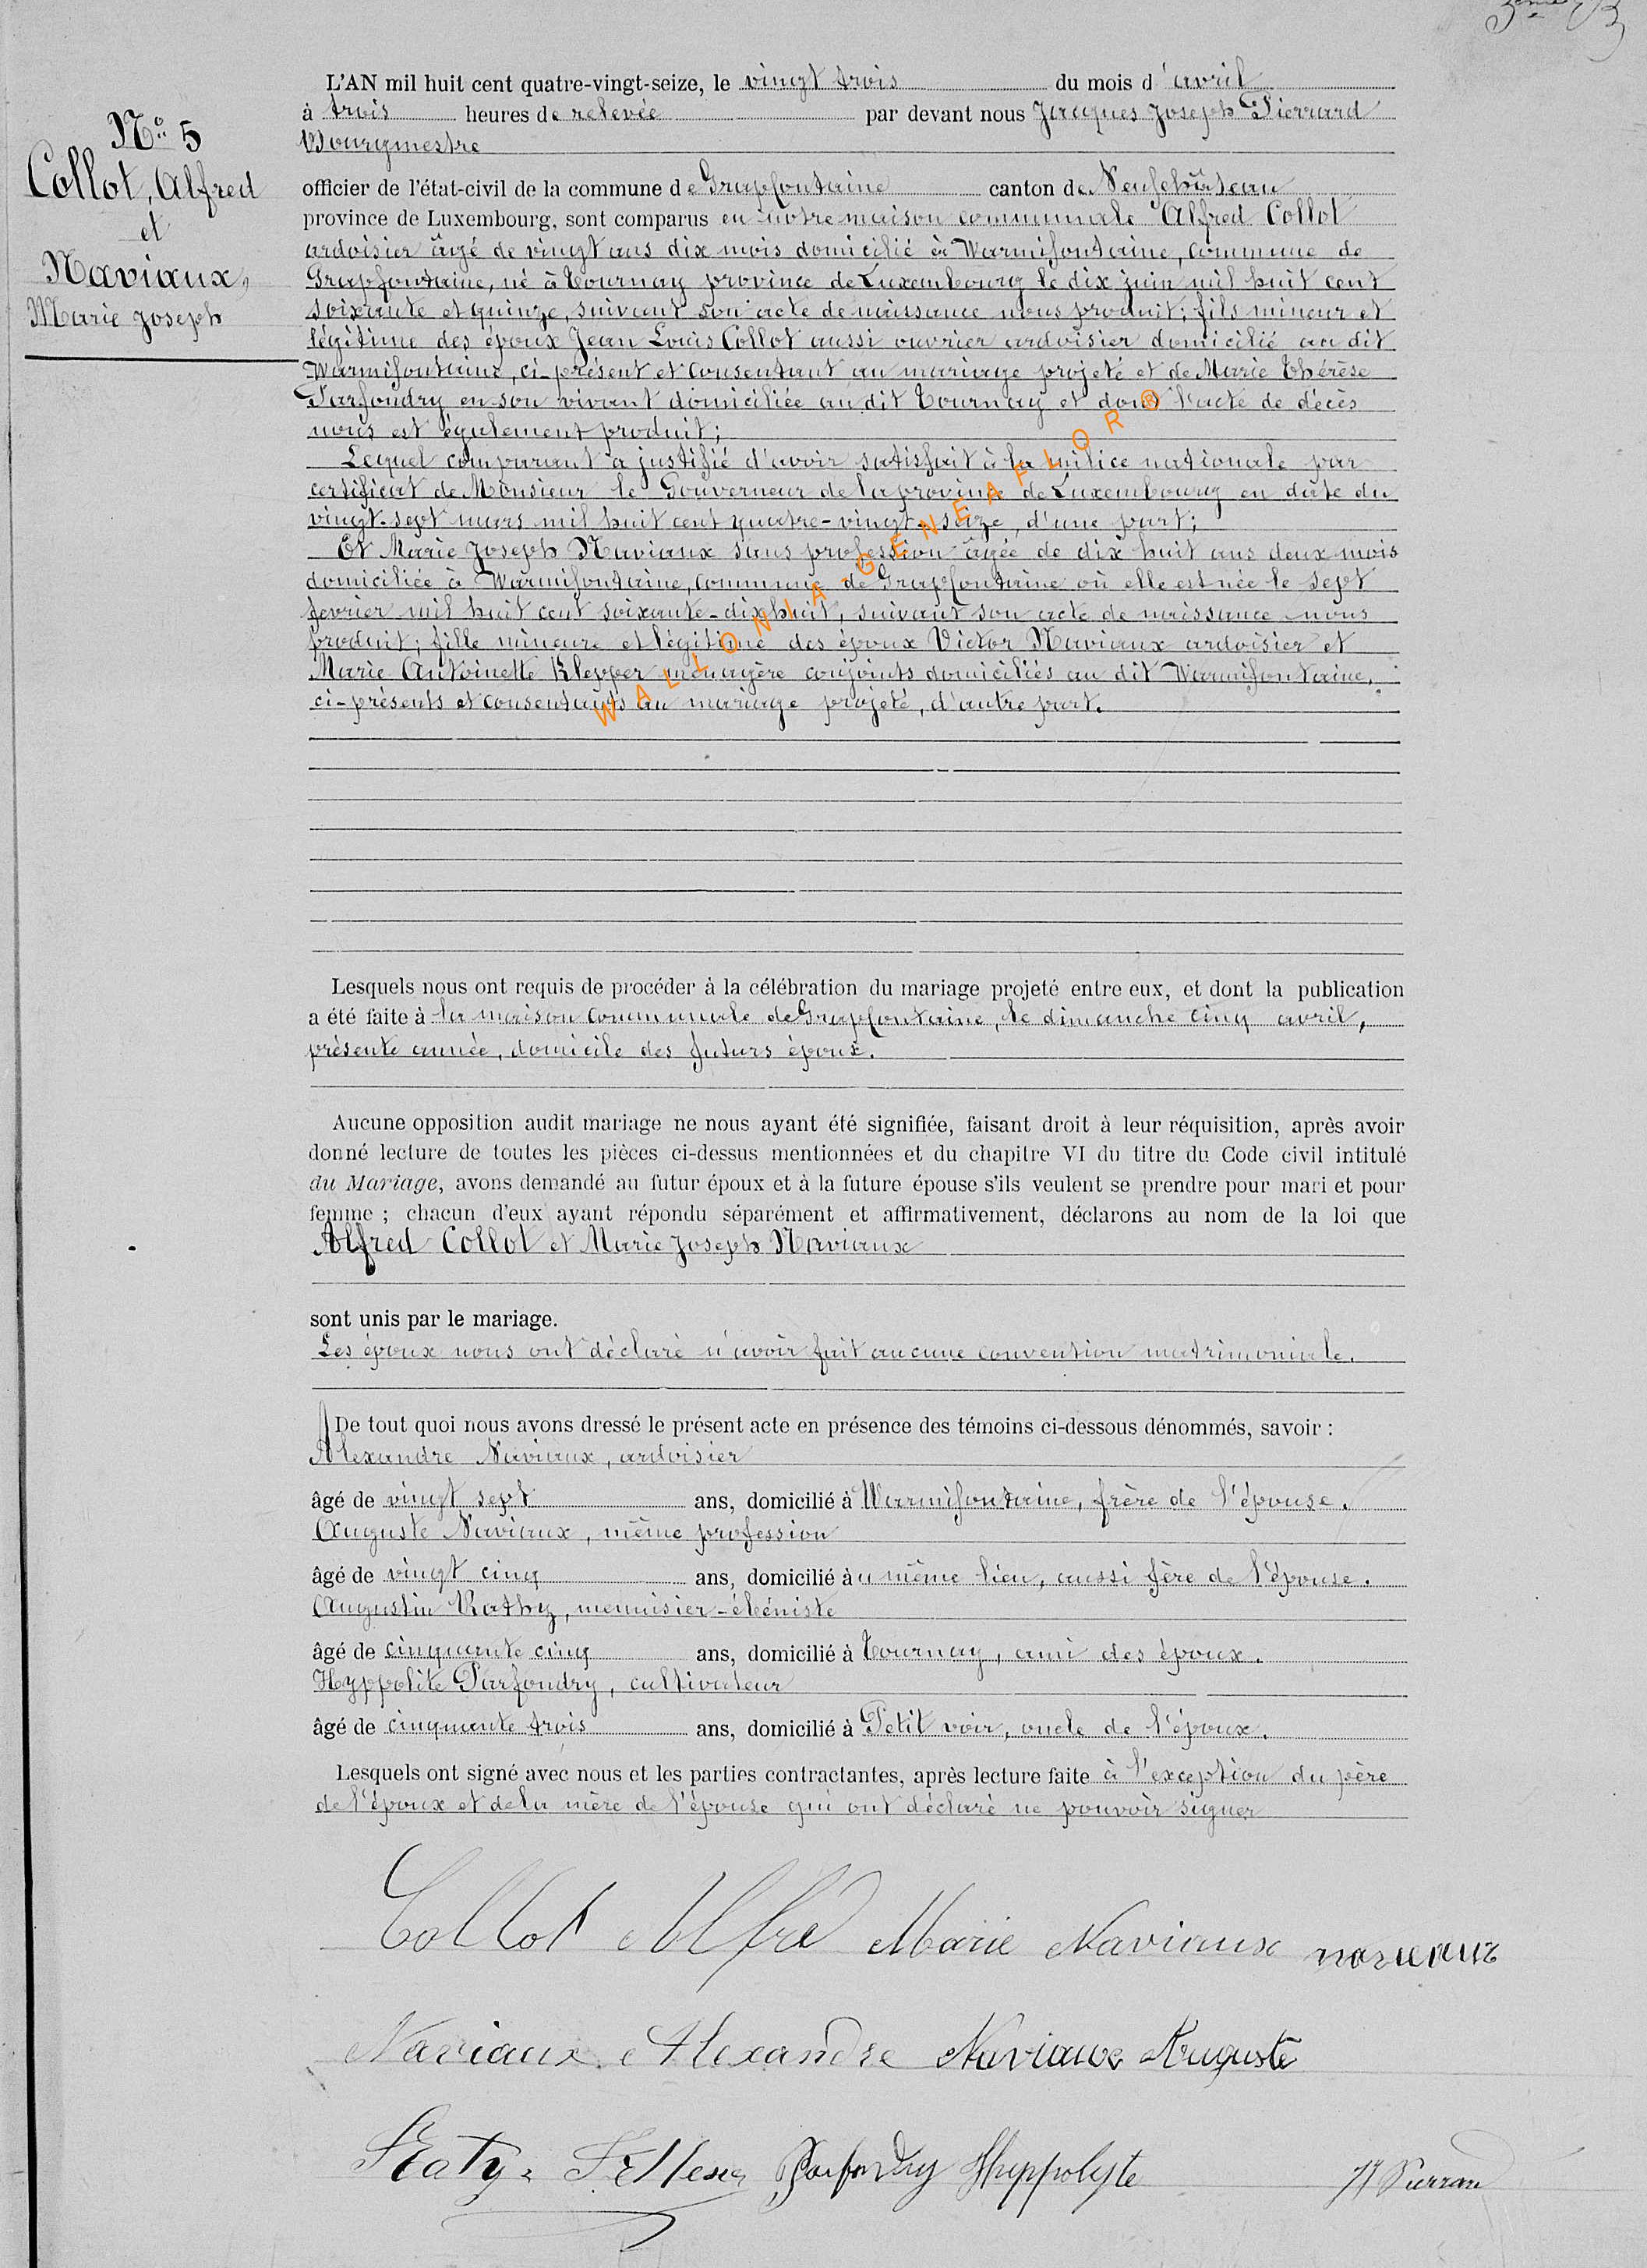 N° 5
Collot, Alfred
et
Naviaux,
Marie Joseph
L'AN mil huit cent quatre-vingt-seize, le vingt trois du mois d'avril
à trois heures de relevée par devant nous Jacques Joseph Pierrard
Bourgmestre
officier de l'état-civil de la commune de Grapfontaine canton de Neufchâteau
province de Luxembourg, sont comparus en notre maison communale Alfred Collot
ardoisier âgé de vingt ans dix mois domicilié à Warmifontaine, commune de
Grapfontaine, né à Tournay province de Luxembourg le dix juin mil huit cent
soixante et quinze, suivant son acte de naissance nous produit; fils mineur et
légitime des époux Jean Louis Collot aussi ouvrier ardoisier domicilié au dit
Warmifontaine, ci-présent et consentant au mariage projeté et de Marie Thérèse
Parfondry en son vivant domiciliée au dit Tournay et dont l'acte de décès
nous est également produit;
Lequel comparant a justifié d'avoir satisfait à la milice nationale par
certificat de Monsieur le Gouverneur de la province de Luxembourg en date du
vingt-sept mars mil huit cent quatre-vingt-seize, d'une part;
Et Marie Joseph Naviaux sans profession âgée de dix huit ans deux mois
domiciliée à Warmifontaine, commune de Grapfontaine où elle est née le sept
fevrier mil huit cent soixante-dix huit, suivant son acte de naissance nous
produit; fille mineure et légitime des époux Victor Naviaux ardoisier et
Marie Antoinette Klepper ménagère conjoints domiciliés au dit Warmifontaine,
ci-présents et consentants au mariage projeté, d'autre part.
WALLONIA-GENEAFLOR®
Lesquels nous ont requis de procéder à la célébration du mariage projeté entre eux, et dont la publication
a été faite à la maison communale de Grapfontaine, le dimanche cinq avril,
présente année, domicile des futurs époux.
Aucune opposition audit mariage ne nous ayant été signifiée, faisant droit à leur réquisition, après avoir
donné lecture de toutes les pièces ci-dessus mentionnées et du chapitre VI du titre du Code civil intitulé
du Mariage, avons demandé au futur époux et à la future épouse s'ils veulent se prendre pour mari et pour
femme ; chacun d'eux ayant répondu séparément et affirmativement, déclarons au nom de la loi que
Alfred Collot et Marie Joseph Naviaux
sont unis par le mariage.
Les époux nous ont déclaré n'avoir fait aucune convention matrimoniale.
De tout quoi nous avons dressé le présent acte en présence des témoins ci-dessous dénommés, savoir :
Alexandre Naviaux, ardoisier
âgé de vingt sept ans, domicilié à Warmifontaine, frère de l'épouse.
Auguste Naviaux, même profession
âgé de vingt cinq ans, domicilié au même lieu, aussi fère de l'épouse.
Augustin Rathy, menuisier-ébéniste
âgé de cinquante cinq ans, domicilié à Tournay, ami des époux.
Hyppolite Parfondry, cultivateur
âgé de cinquante trois ans, domicilié à Petit voir, oncle de l'époux.
Lesquels ont signé avec nous et les parties contractantes, après lecture faite à l'exception du père
de l'époux et de la mère de l'épouse qui ont déclaré ne pouvoir signer
Collot Alfred Marie Naviaux naviaux
Naviaux Alexandre Naviaux Auguste
Parfondry Hyppolyte JJ Pierrard